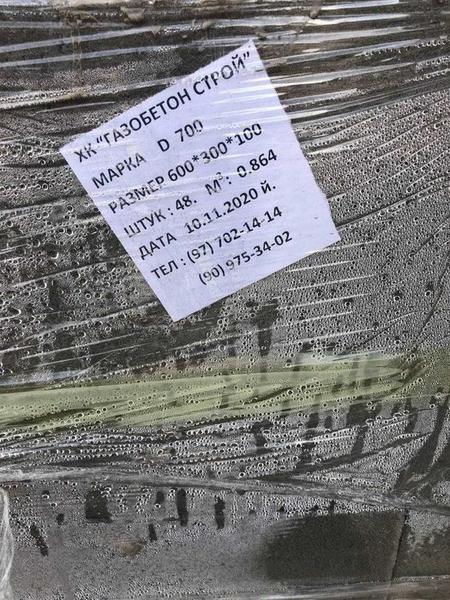 ХК "ГАЗОБЕТОН СТРОЙ"
МАРКА D 700
РАЗМЕР 600*300*100
ШТУК : 48. М³: 0.864
ДАТА 10.11.2020 й.
ТЕЛ : (97) 702-14-14
(90) 975-34-02